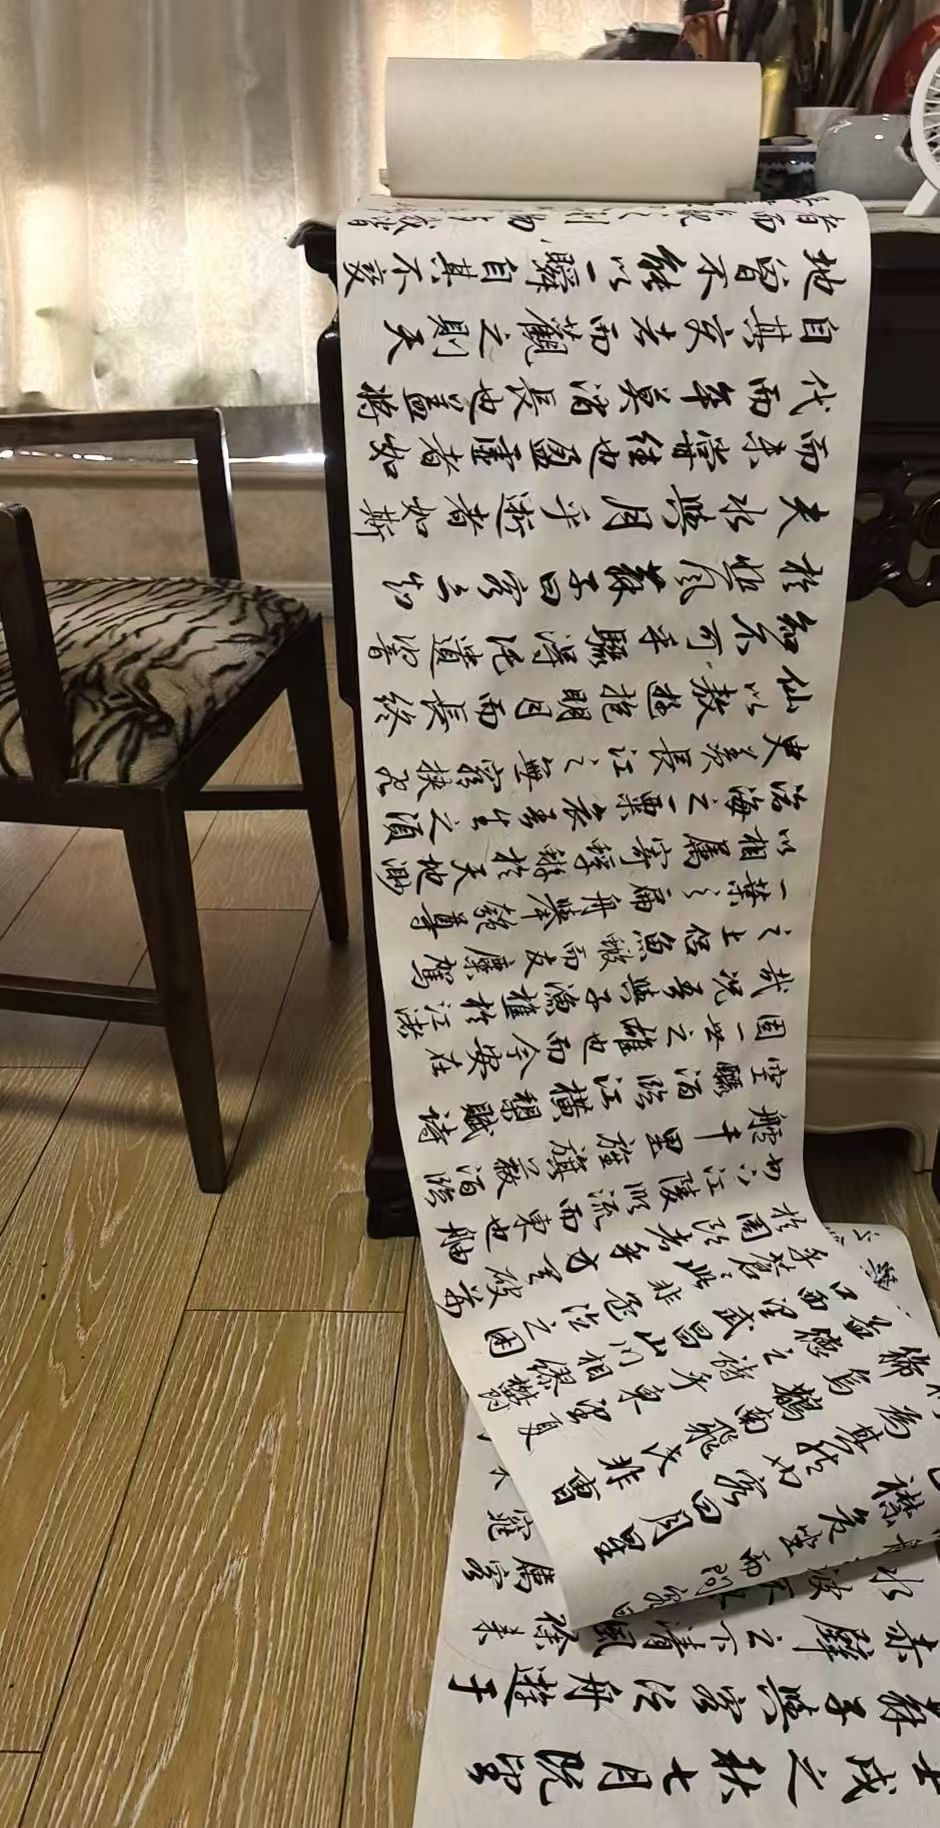 戌之秋七月既望
蘇子與客泛舟遊于
赤壁之下清風徐來
水波不
襟危坐而問客曰
為其然也客曰月星
稀烏鵲南飛非曹
孟德之詩乎東望夏
口西望武昌山川相繆鬱
乎蒼蒼此非孟德之困
於周郎者乎方其破荊
州下江陵順流而東也舳
艫千里旌旗蔽酒臨
空釃酒臨江橫槊賦詩
固一世之雄也而今安在
哉況吾與子漁樵於江渚
之上侶魚蝦而友麋駕
一葉之扁舟舉匏尊
以相屬寄蜉蝣於天地渺
滄海之一粟哀吾生之須
臾羨長江之無窮挾飛
仙以遨遊抱明月而長終
知不可乎驟得託遺響
於悲風蘇子曰客亦知
夫水與月乎逝者如斯
而未嘗往也盈虛者如
代而卒莫消長也蓋將
自其變者而觀之則天
地曾不能以一瞬自其不變
者而觀之則物與我皆